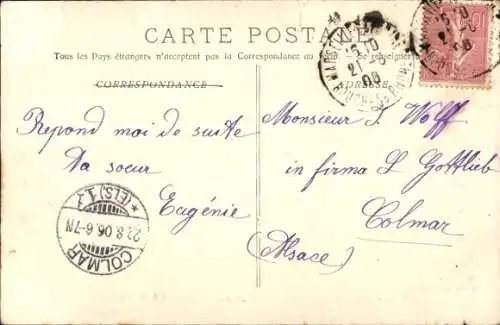 CARTE POSTALE
Tous les Pays étrangers n'acceptent pas la Correspondance au
CORRESPONDANCE
Repond moi de suite
Ta soeur
Eugénie
Monsieur J. Wolff
in firma L Gottlieb
Colmar
(Alsace)
COLMAR
22.8.06.6-7N
*(ELS.)1.1
15 10
21-8
06
10